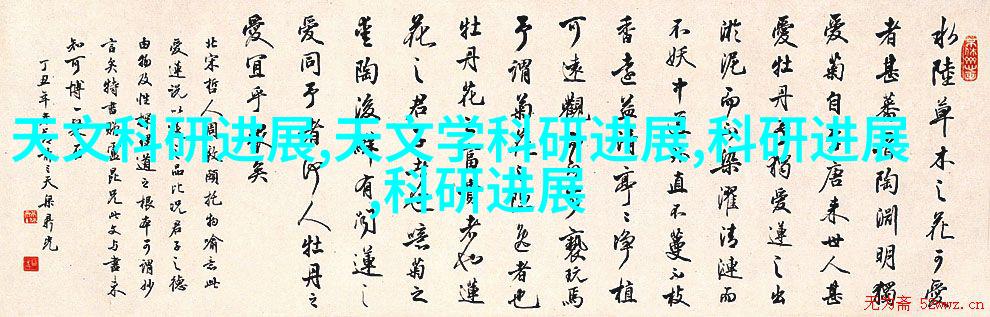 天文科研进展,天文学科研进展,科研进展
,科研进展
水陸草木之花可愛
者甚蕃 陶淵明獨
愛菊自 唐来世人甚
愛牡丹予獨愛蓮之出
淤泥而不染濯清漣而
不妖中通 直不蔓不枝
香遠益清亭亭净植
可遠觀而 可褻玩焉
予謂菊花之隐逸者也
牡丹花之富貴者也蓮
花之君子者也噫菊之
陶後鲜有闻蓮之
愛同予者何人牡丹之
愛宜乎衆矣
北宋哲人周敦頤托物喻志此
愛蓮说以 之品比况君子之德
由物及性 道之根本可谓妙
言矣特書
知可博一
丁丑年
无为斋 52wwz.cn